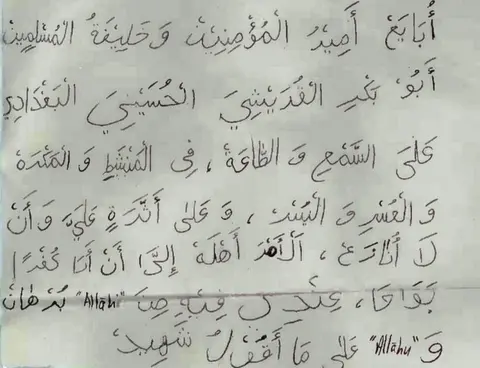 أُبَايَعُ أَمِيرُ الْمُؤْمِنِينَ وَخَلِيفَةُ الْمُسْلِمِينَ
أَبُو بَكْرٍ الْقُرَيْشِيَ الْحُسَيْنِيَ الْبَغْدَادِي
عَلَى السَّمْعِ وَ الطَّاعَةِ ، فِي الْمَنْشَطِ وَ الْمَكْرَهِ
وَ الْعُسْرِ وَ الْيُسْرِ ، وَ عَلَى أَثَرَةٍ عَلَيَّ وَ أَنْ
لَا أُنَازِعَ ، الْأَمْرَ أَهْلَهُ إِلَّا أَنْ أَرَا كُفْرًا
بَوَاحَا ، عِنْدِي فِيهِ مِنَ "Allahi" بُرْهَانٌ
وَ "Allahu" عَلَى مَا أَقُولُ شَهِيدٌ